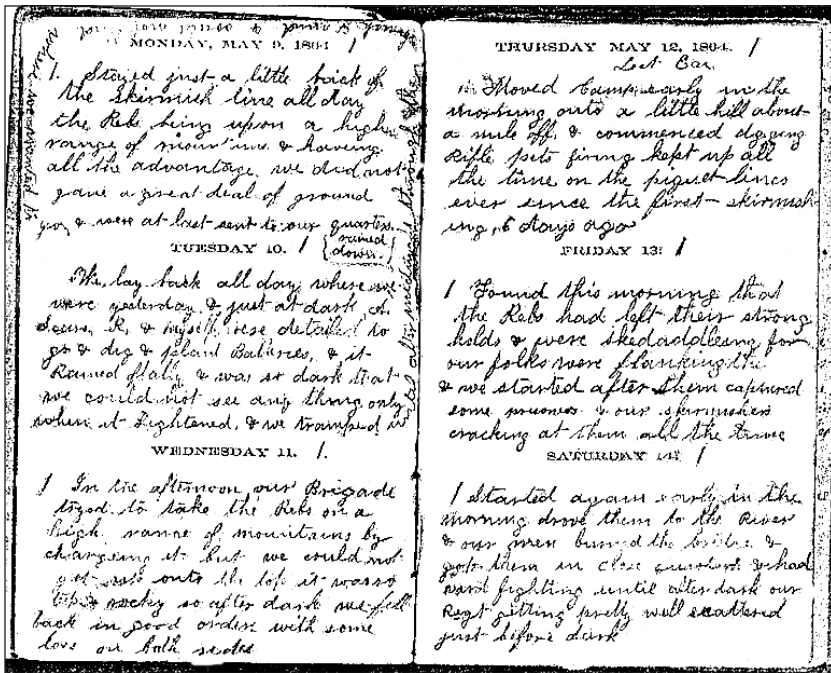 MONDAY, MAY 9, 1864
1. Stayed just a little back of
the skirmish line all day
the Rebs being upon a higher
range of mountains & having
all the advantage, we did not
gane a great deal of ground
& were at last sent to our quarters
TUESDAY 10. 1 { rained down. }
We lay back all day where we
were yesterday & just at dark,
& myself were detailed to
go & dig & plant Batteries, & it
Rained & was so dark that
we could not see any thing only
when it Lightened, & we tramped
until after midnight through the
WEDNESDAY 11. 1.
1 In the afternoon our Brigade
tryed to take the Rebs on a
high range of mountains by
chargeing it but we could not
get onto the top it was so
& rocky so after dark we fell
back in good order with some
loss on both sides
THURSDAY MAY 12, 1864. 1
Moved Camp early in the
morning onto a little hill about
a mile off, & commenced digging
Rifle pits firing kept up all
the time on the piquet lines
ever since the first skirmish
ing, 6 days ago
FRIDAY 13. 1
1 Found this morning that
the Rebs had left their strong
holds & were skedaddleing for
our folks were flanking the
& we started after them captured
some prisoners & our skirmishers
cracking at them all the time
SATURDAY 14. 1
1 Started again early in the
morning drove them to the River
& our men burned the bridge &
got them in close quarters & had
hard fighting until after dark our
Regt gitting pretty well scattered
just before dark